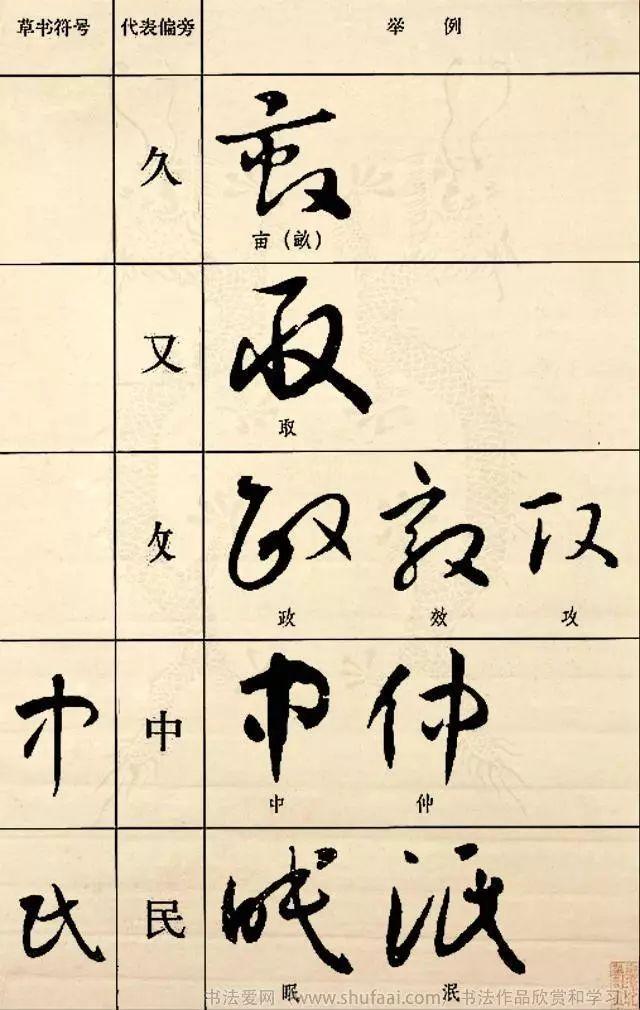 草书符号 代表偏旁 举例
久
亩（畝）
又
取
攵
政 效 攻
中
中 仲
民
眠 泯
书法爱网 www.shufaai.com 书法作品欣赏和学习